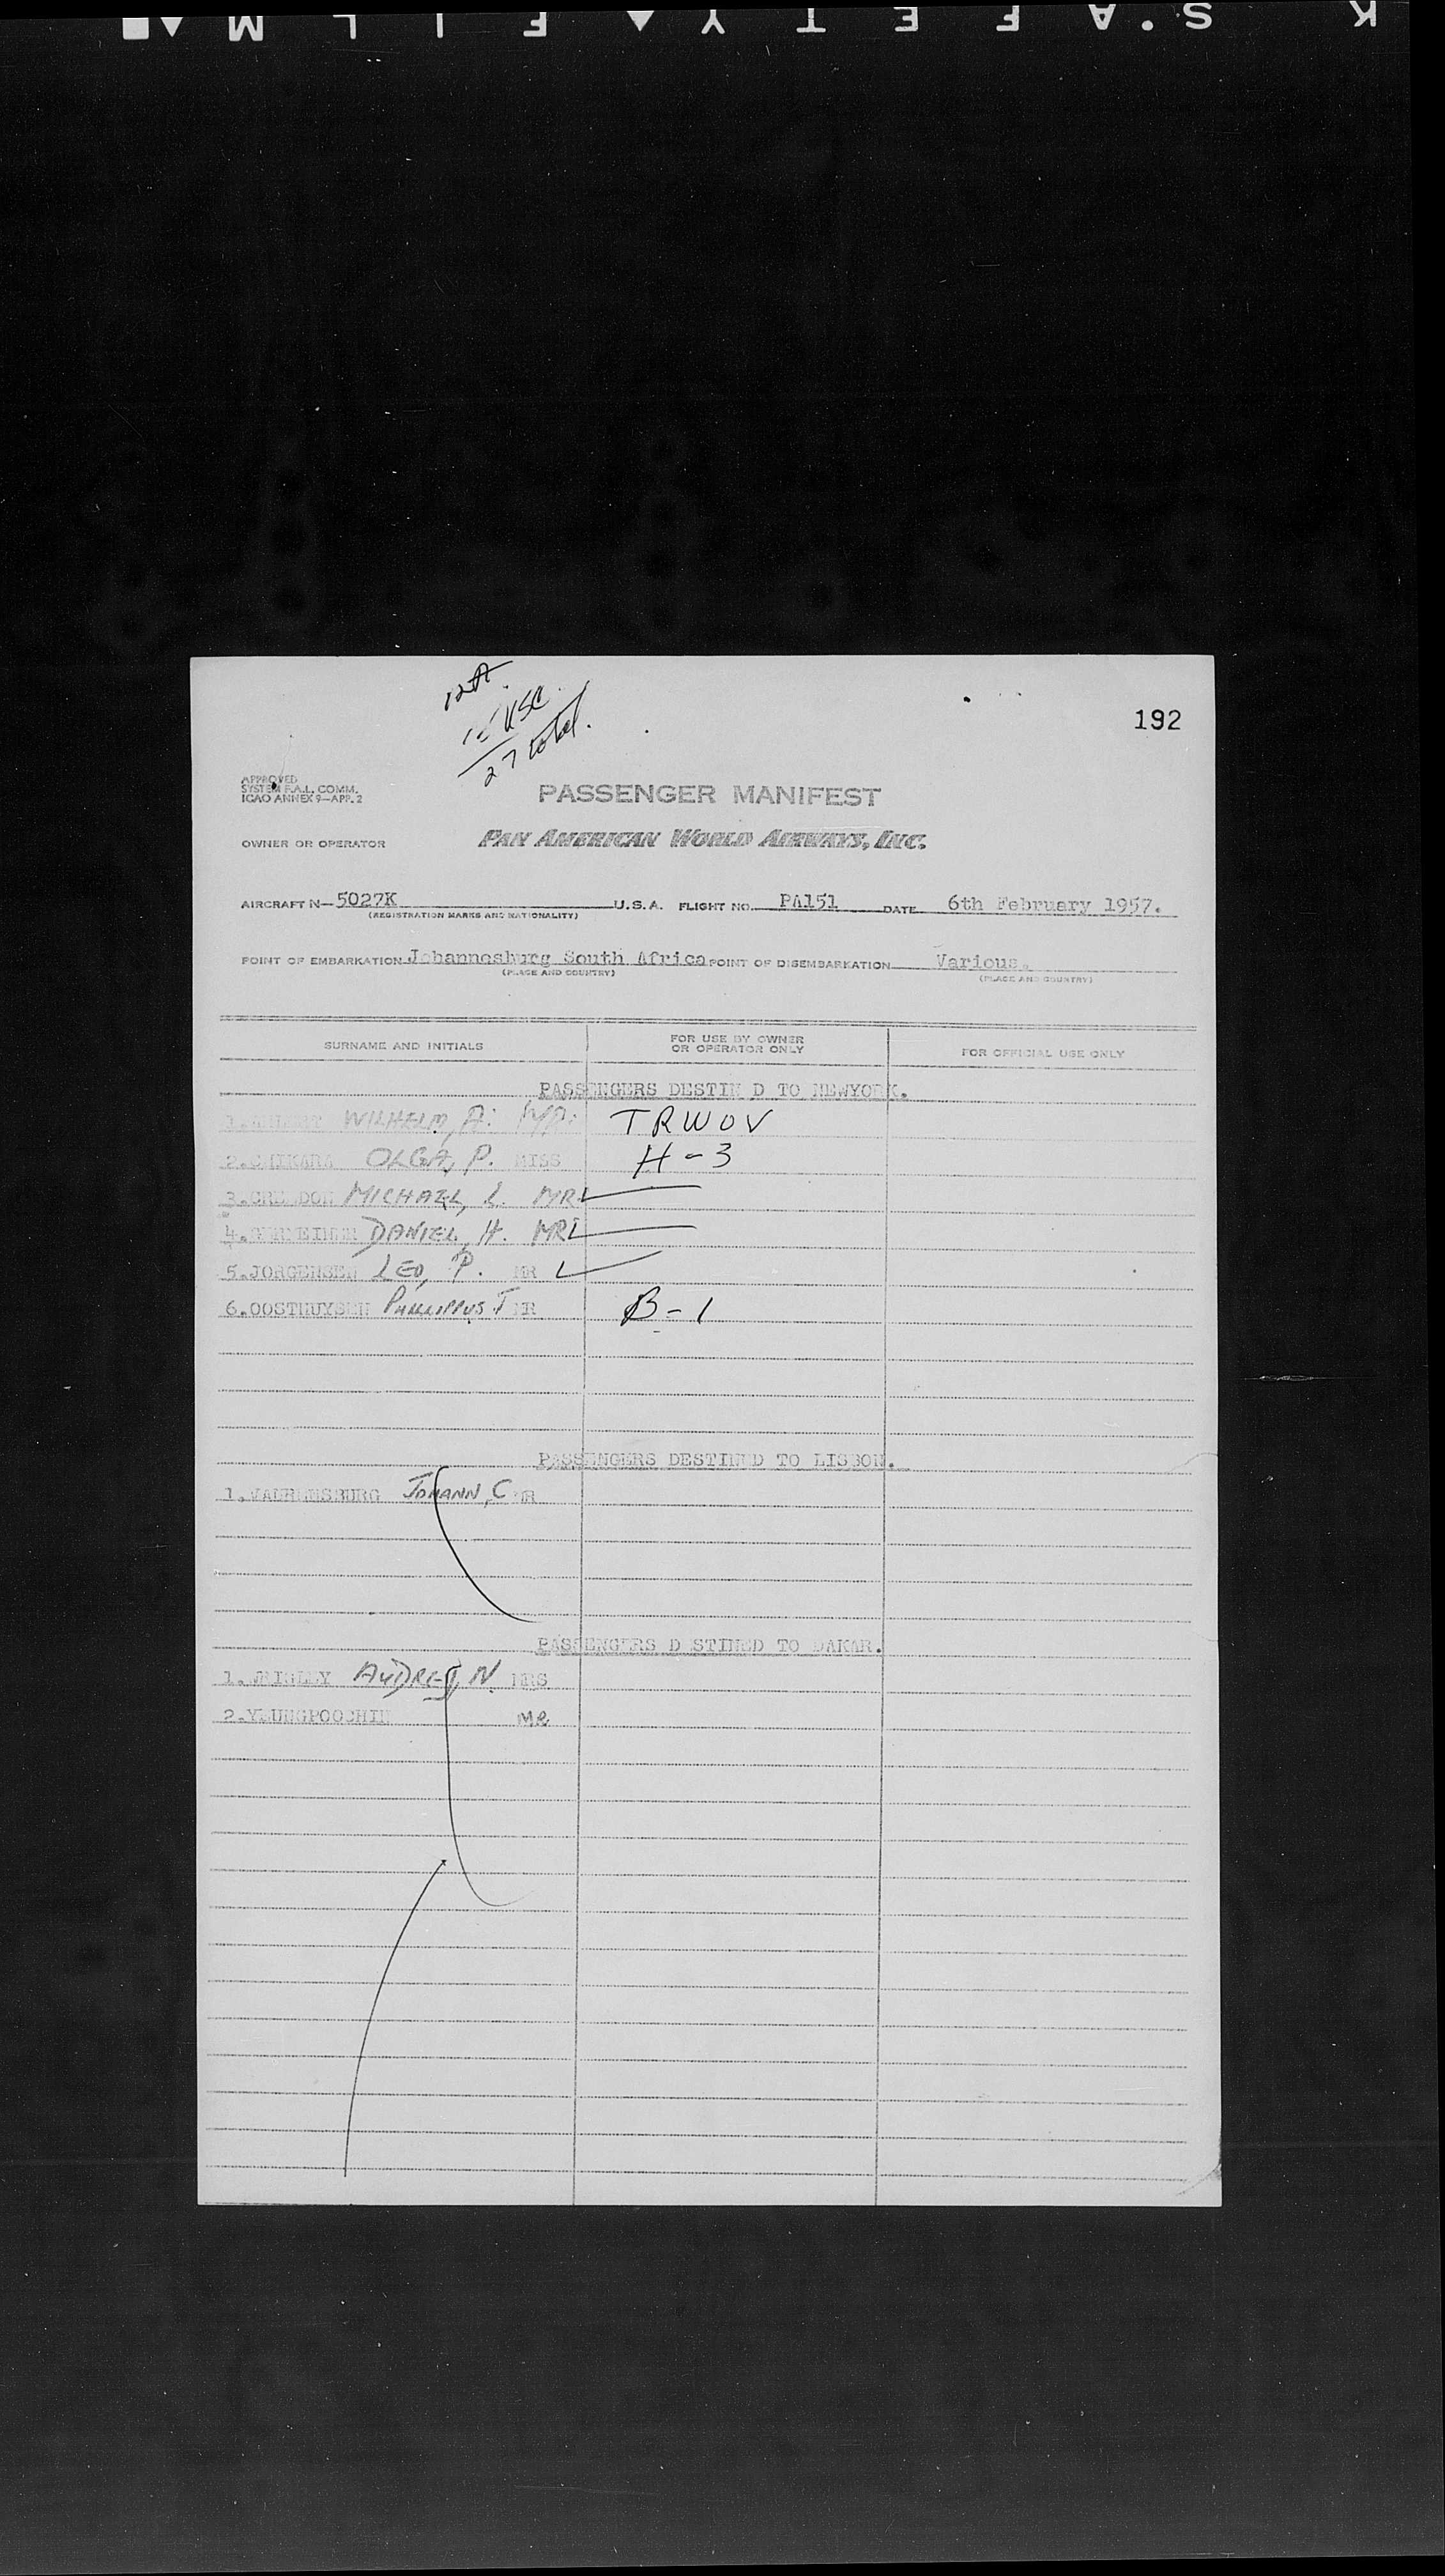 K S.AFETY FILM
12A.
15 USC.
27 total.
192
APPROVED
SYSTEM F.A.L. COMM.
ICAO ANNEX 9—APP. 2
PASSENGER MANIFEST
OWNER OR OPERATOR PAN AMERICAN WORLD AIRWAYS, INC.
AIRCRAFT N— 5027K U.S.A. FLIGHT NO. PA151 DATE 6th February 1957.
(REGISTRATION MARKS AND NATIONALITY)
POINT OF EMBARKATION Johannesburg South Africa POINT OF DISEMBARKATION Various.
(PLACE AND COUNTRY) (PLACE AND COUNTRY)
SURNAME AND INITIALS FOR USE BY OWNER OR OPERATOR ONLY FOR OFFICIAL USE ONLY
PASSENGERS DESTIN D TO NEWYORK.
1. WILHELM, A. MR. TRWOV
2. OLGA, P. MISS H-3
3. MICHAEL, L. MR
4. DANIEL, H. MR
5.JORGENSEN LEO, P. MR
6.OOSTHUYSEN PHILLIPPUS.T MR B-1
PASSENGERS DESTINED TO LISBON.
1. JOHANN, C MR
PASSENGERS D STINED TO DAKAR.
1. AUDREY, N. MRS
2. MR